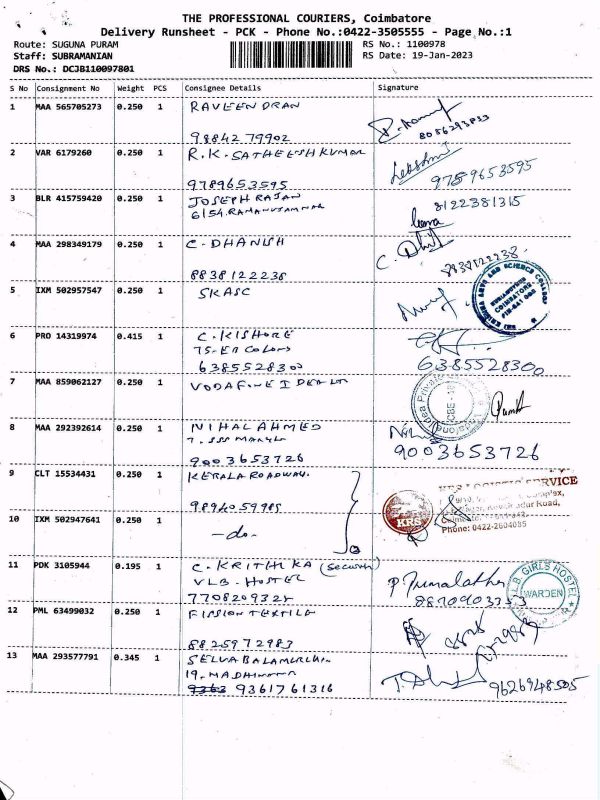 THE PROFESSIONAL COURIERS, Coimbatore
Delivery Runsheet - PCK - Phone No.:0422-3505555 - Page No.:1
Route: SUGUNA PURAM RS No.: 1100978
Staff: SUBRAMANIAN RS Date: 19-Jan-2023
DRS No.: DCJB110097801
S No Consignment No Weight PCS Consignee Details Signature
1 MAA 565705273 0.250 1 RAVEENDRAN
9884279902 8056293833
2 VAR 6179260 0.250 1 R.K. SATHEESH KUMAR
9789653595 9789653595
3 BLR 415759420 0.250 1 JOSEPH RAJAN 8122381315
6/54. RAMANUJAM NAR
4 MAA 298349179 0.250 1 C. DHANISH
8838122238 8838122238
5 IXM 502957547 0.250 1 SKASC
SRI KRISHNA ARTS AND SCIENCE COLLEGE
COIMBATORE
6 PRO 14319974 0.415 1 C. KISHORE
75-EB COLONY
6385528300 6385528300
7 MAA 859062127 0.250 1 VODAFONE IDEA LTD
8 MAA 292392614 0.250 1 NIHAL AHMED
9003653726 9003653726
9 CLT 15534431 0.250 1 KERALA ROADWAY. KRS LOGISTIC SERVICE
9894059985 KRS
Phone: 0422-2604085
10 IXM 502947641 0.250 1 -do-
11 PDK 3105944 0.195 1 C. KRITHIKA (Security)
VLB. HOSTEL P. Premalatha
7708209328 V.L.B. GIRLS HOSTEL
WARDEN
12 PML 63499032 0.250 1 FISSION TEXTILE
8825972983
13 MAA 293577791 0.345 1 SELVABALAMURUGAN
9363 9361761316 9626948505